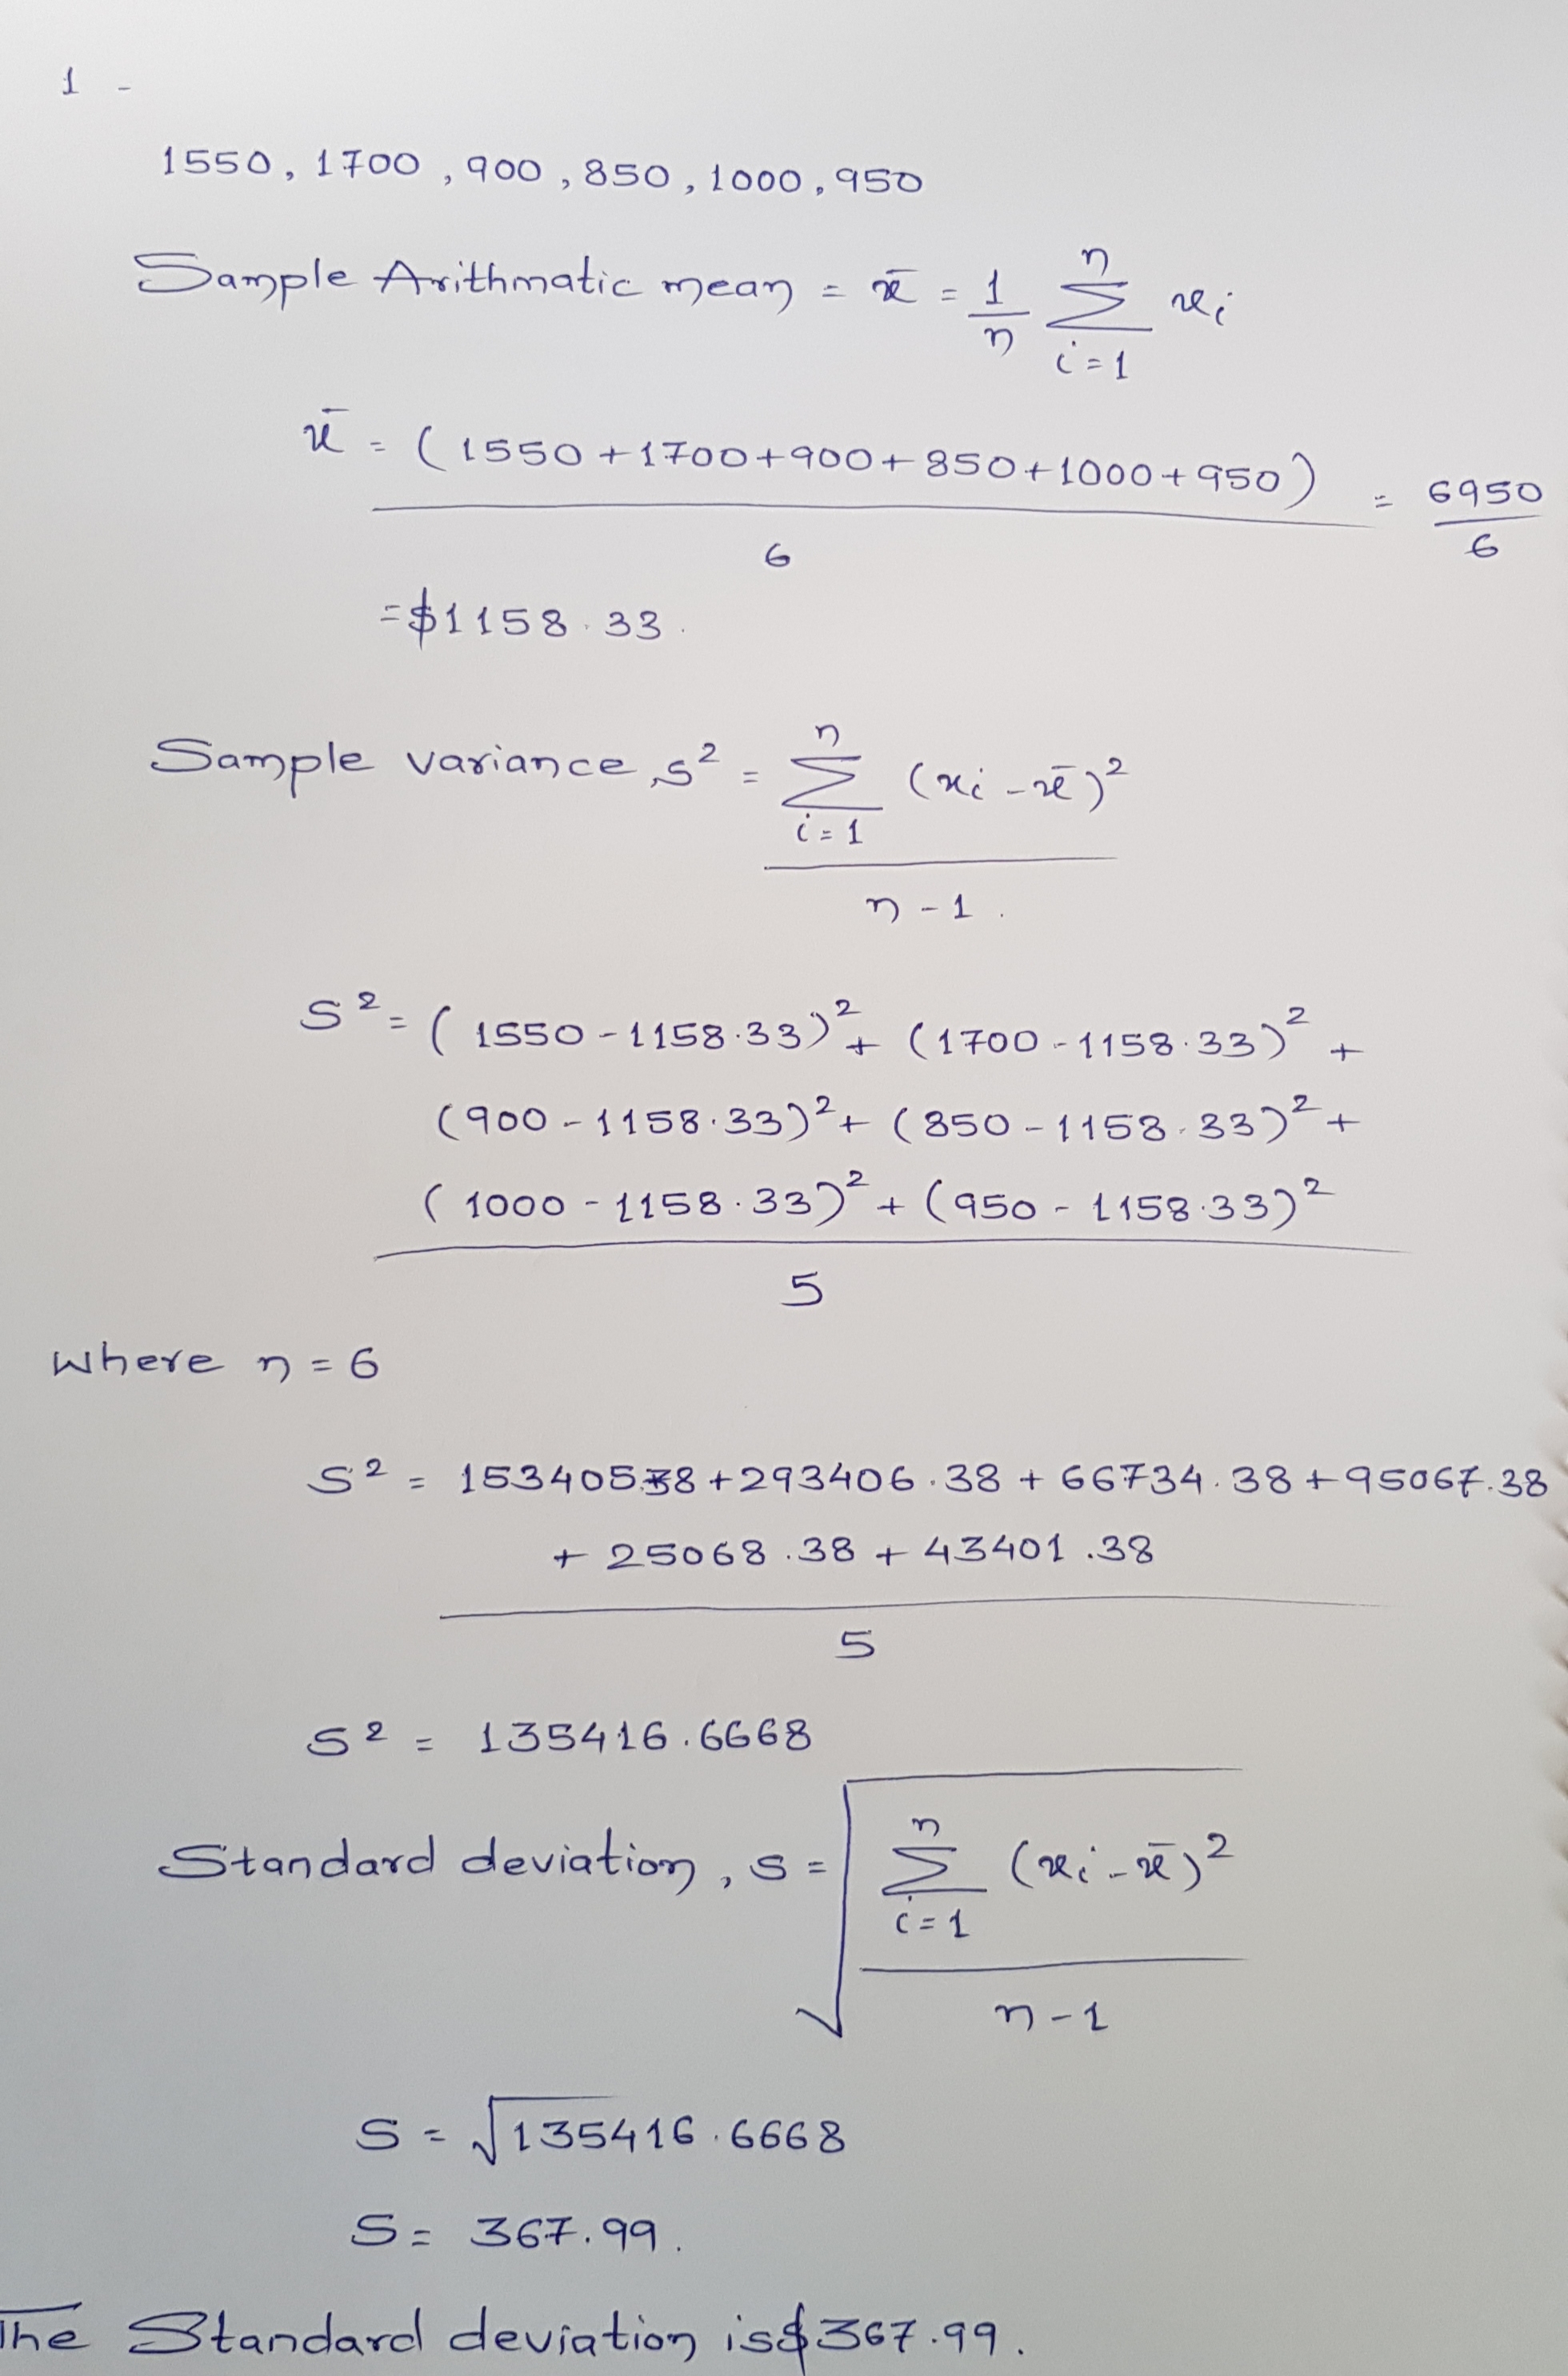 1 -
1550, 1700, 900, 850, 1000, 950
Sample Arithmatic mean = x̄ = 1/n Σ_{i=1}^{n} xᵢ
x̄ = (1550+1700+900+850+1000+950) / 6 = 6950/6
= $1158.33.
Sample variance, s² = Σ_{i=1}^{n} (xᵢ - x̄)² / n-1.
S² = (1550-1158.33)² + (1700-1158.33)² +
(900-1158.33)² + (850-1158.33)² +
(1000-1158.33)² + (950-1158.33)²
5
where n = 6
S² = 153405.38+293406.38+66734.38+95067.38
+ 25068.38 + 43401.38
5
S² = 135416.6668
Standard deviation, s = √(Σ_{i=1}^{n} (xᵢ - x̄)² / n-1)
S = √135416.6668
S = 367.99.
The Standard deviation is $367.99.